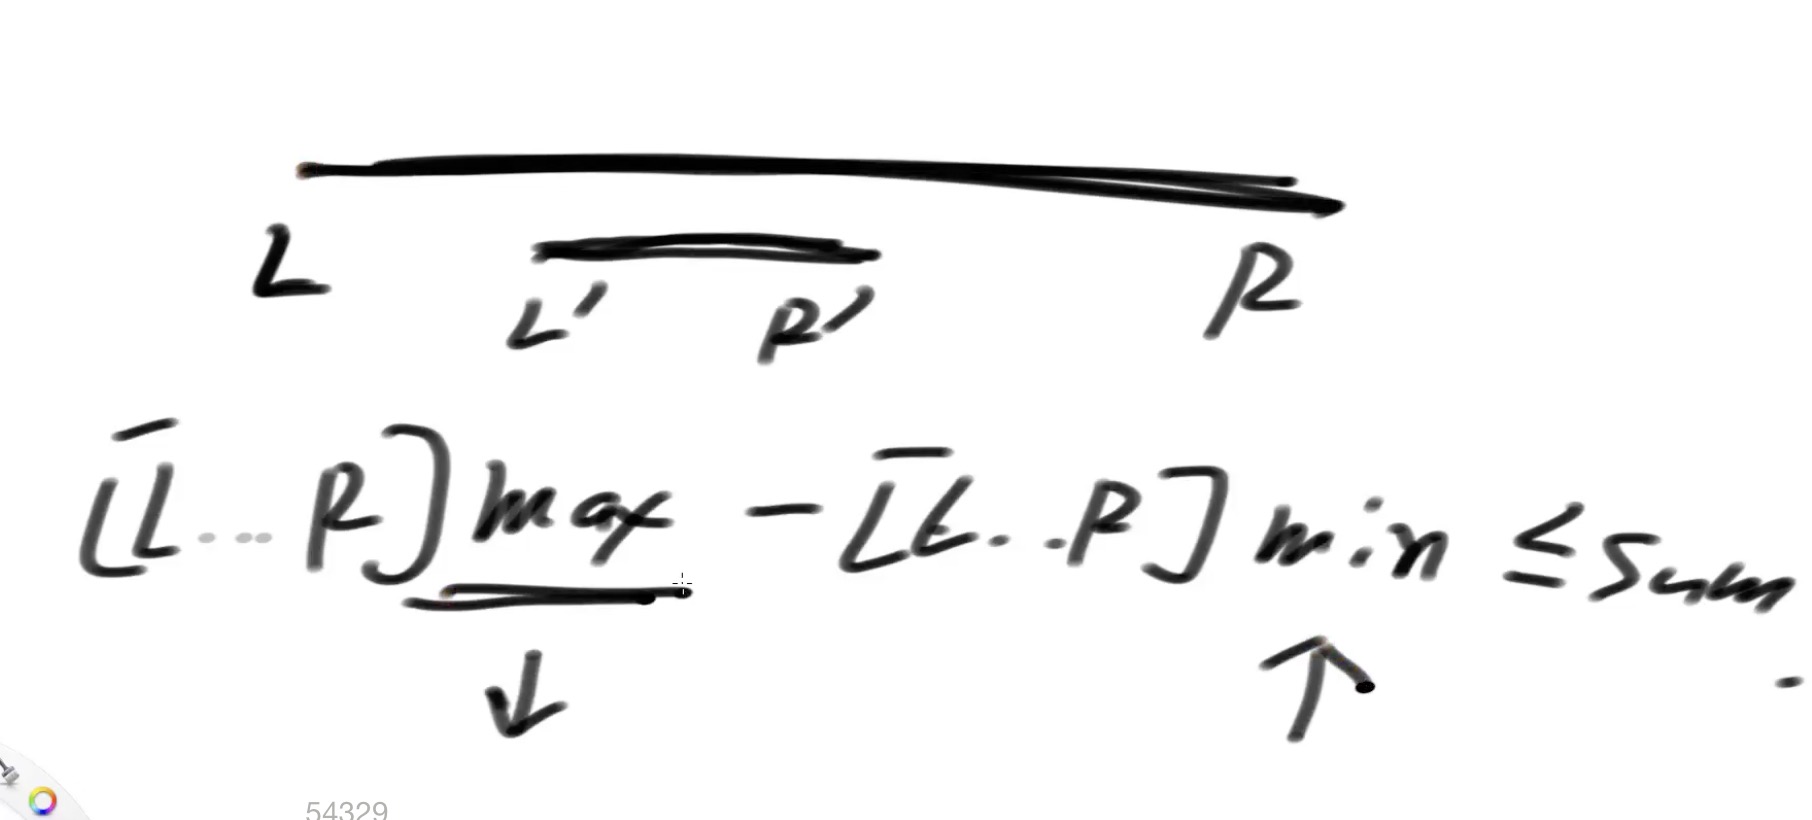 L R
L' R'
[L...R]max - [L..R]min ≤ Sum
54329